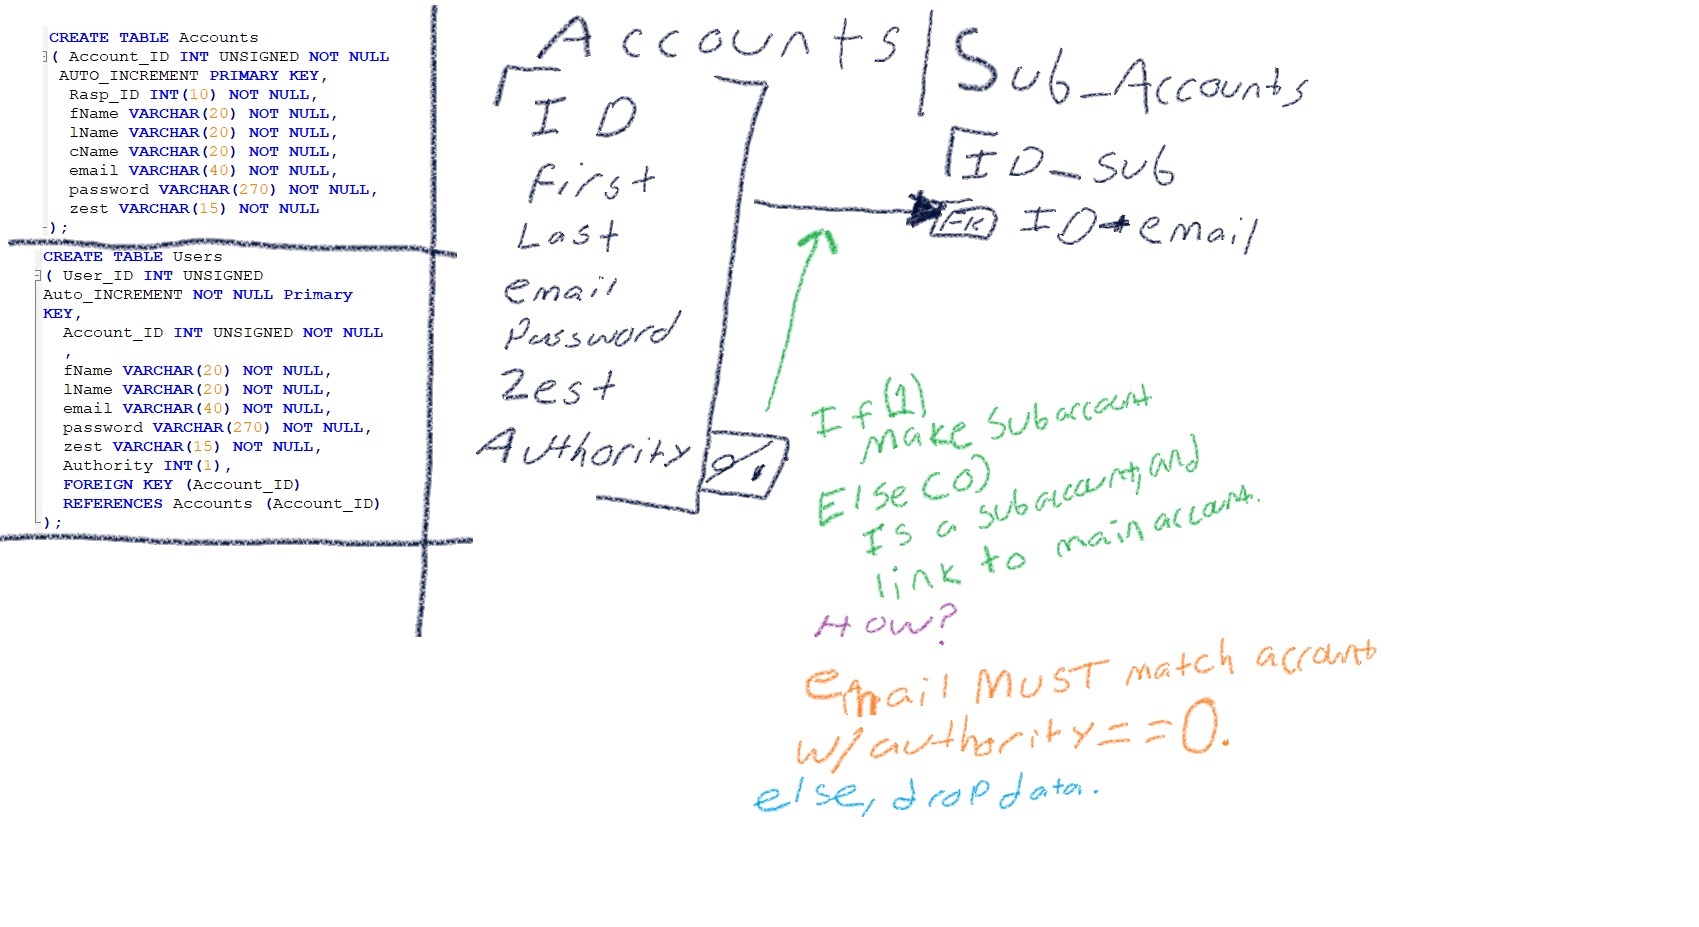 CREATE TABLE Accounts
( Account_ID INT UNSIGNED NOT NULL
AUTO_INCREMENT PRIMARY KEY,
Rasp_ID INT(10) NOT NULL,
fName VARCHAR(20) NOT NULL,
lName VARCHAR(20) NOT NULL,
cName VARCHAR(20) NOT NULL,
email VARCHAR(40) NOT NULL,
password VARCHAR(270) NOT NULL,
zest VARCHAR(15) NOT NULL
);
CREATE TABLE Users
( User_ID INT UNSIGNED
Auto_INCREMENT NOT NULL Primary
KEY,
Account_ID INT UNSIGNED NOT NULL
,
fName VARCHAR(20) NOT NULL,
lName VARCHAR(20) NOT NULL,
email VARCHAR(40) NOT NULL,
password VARCHAR(270) NOT NULL,
zest VARCHAR(15) NOT NULL,
Authority INT(1),
FOREIGN KEY (Account_ID)
REFERENCES Accounts (Account_ID)
);
Accounts
ID
first
Last
email
Password
Zest
Authority 0/1
Sub_Accounts
ID_sub
FK ID→email
If (1)
make subaccount
Else (0)
Is a subaccount, and
link to main account.
How?
email MUST match account
w/ authority == 0.
else, drop data.